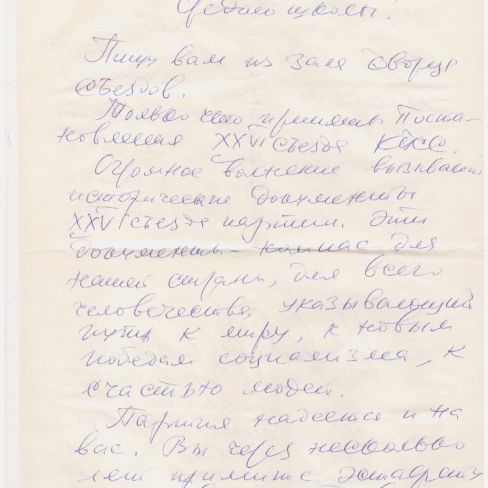 средней школы!
Пишу вам из зала Дворца
съездов.
Только что приняты Поста-
новления XXVI съезда КПСС.
Огромное волнение вызывают
исторические документы
XXVI съезда партии. Эти
документы - компас для
нашей страны, для всего
человечества указывающий
путь к миру, к новым
победам социализма, к
счастью людей.
Партия надеется и на
вас. Вы через несколько
лет примите эстафету